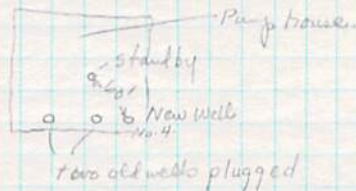 Pump house.
standby
60'
New Well
No. 4
two old wells plugged